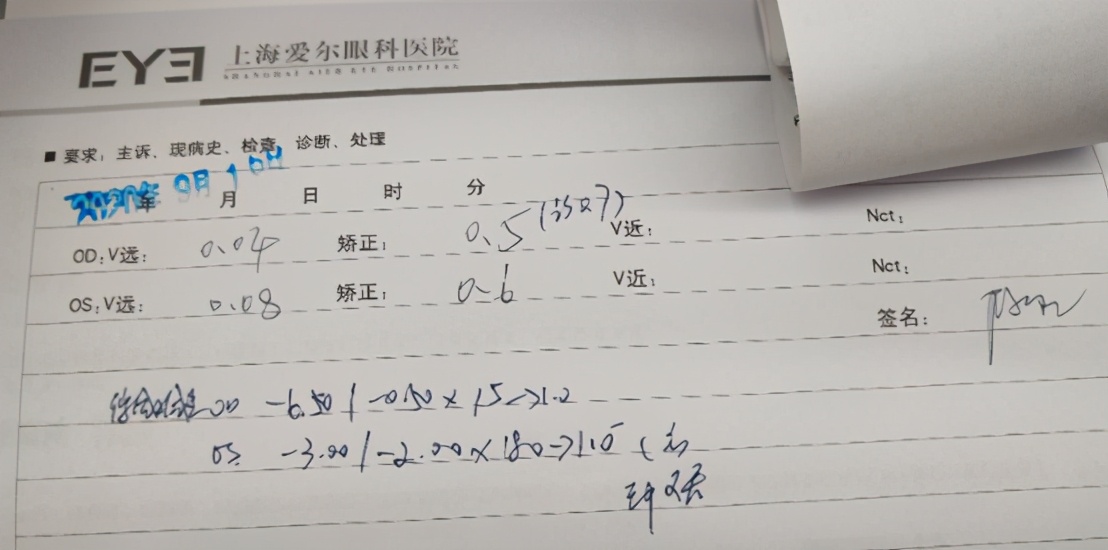 EYE 上海爱尔眼科医院
SHANGHAI AIER EYE HOSPITAL
■ 要求：主诉、现病史、检查、诊断、处理
9月10日
年 月 日 时 分
OD：V远： 0.04 矫正： 0.5 V近： Nct：
OS：V远： 0.08 矫正： 0.6 V近： Nct：
签名：
OD -6.50 / -0.50 × 15 → 1.2
OS -3.00 / -2.00 × 180 → 1.0